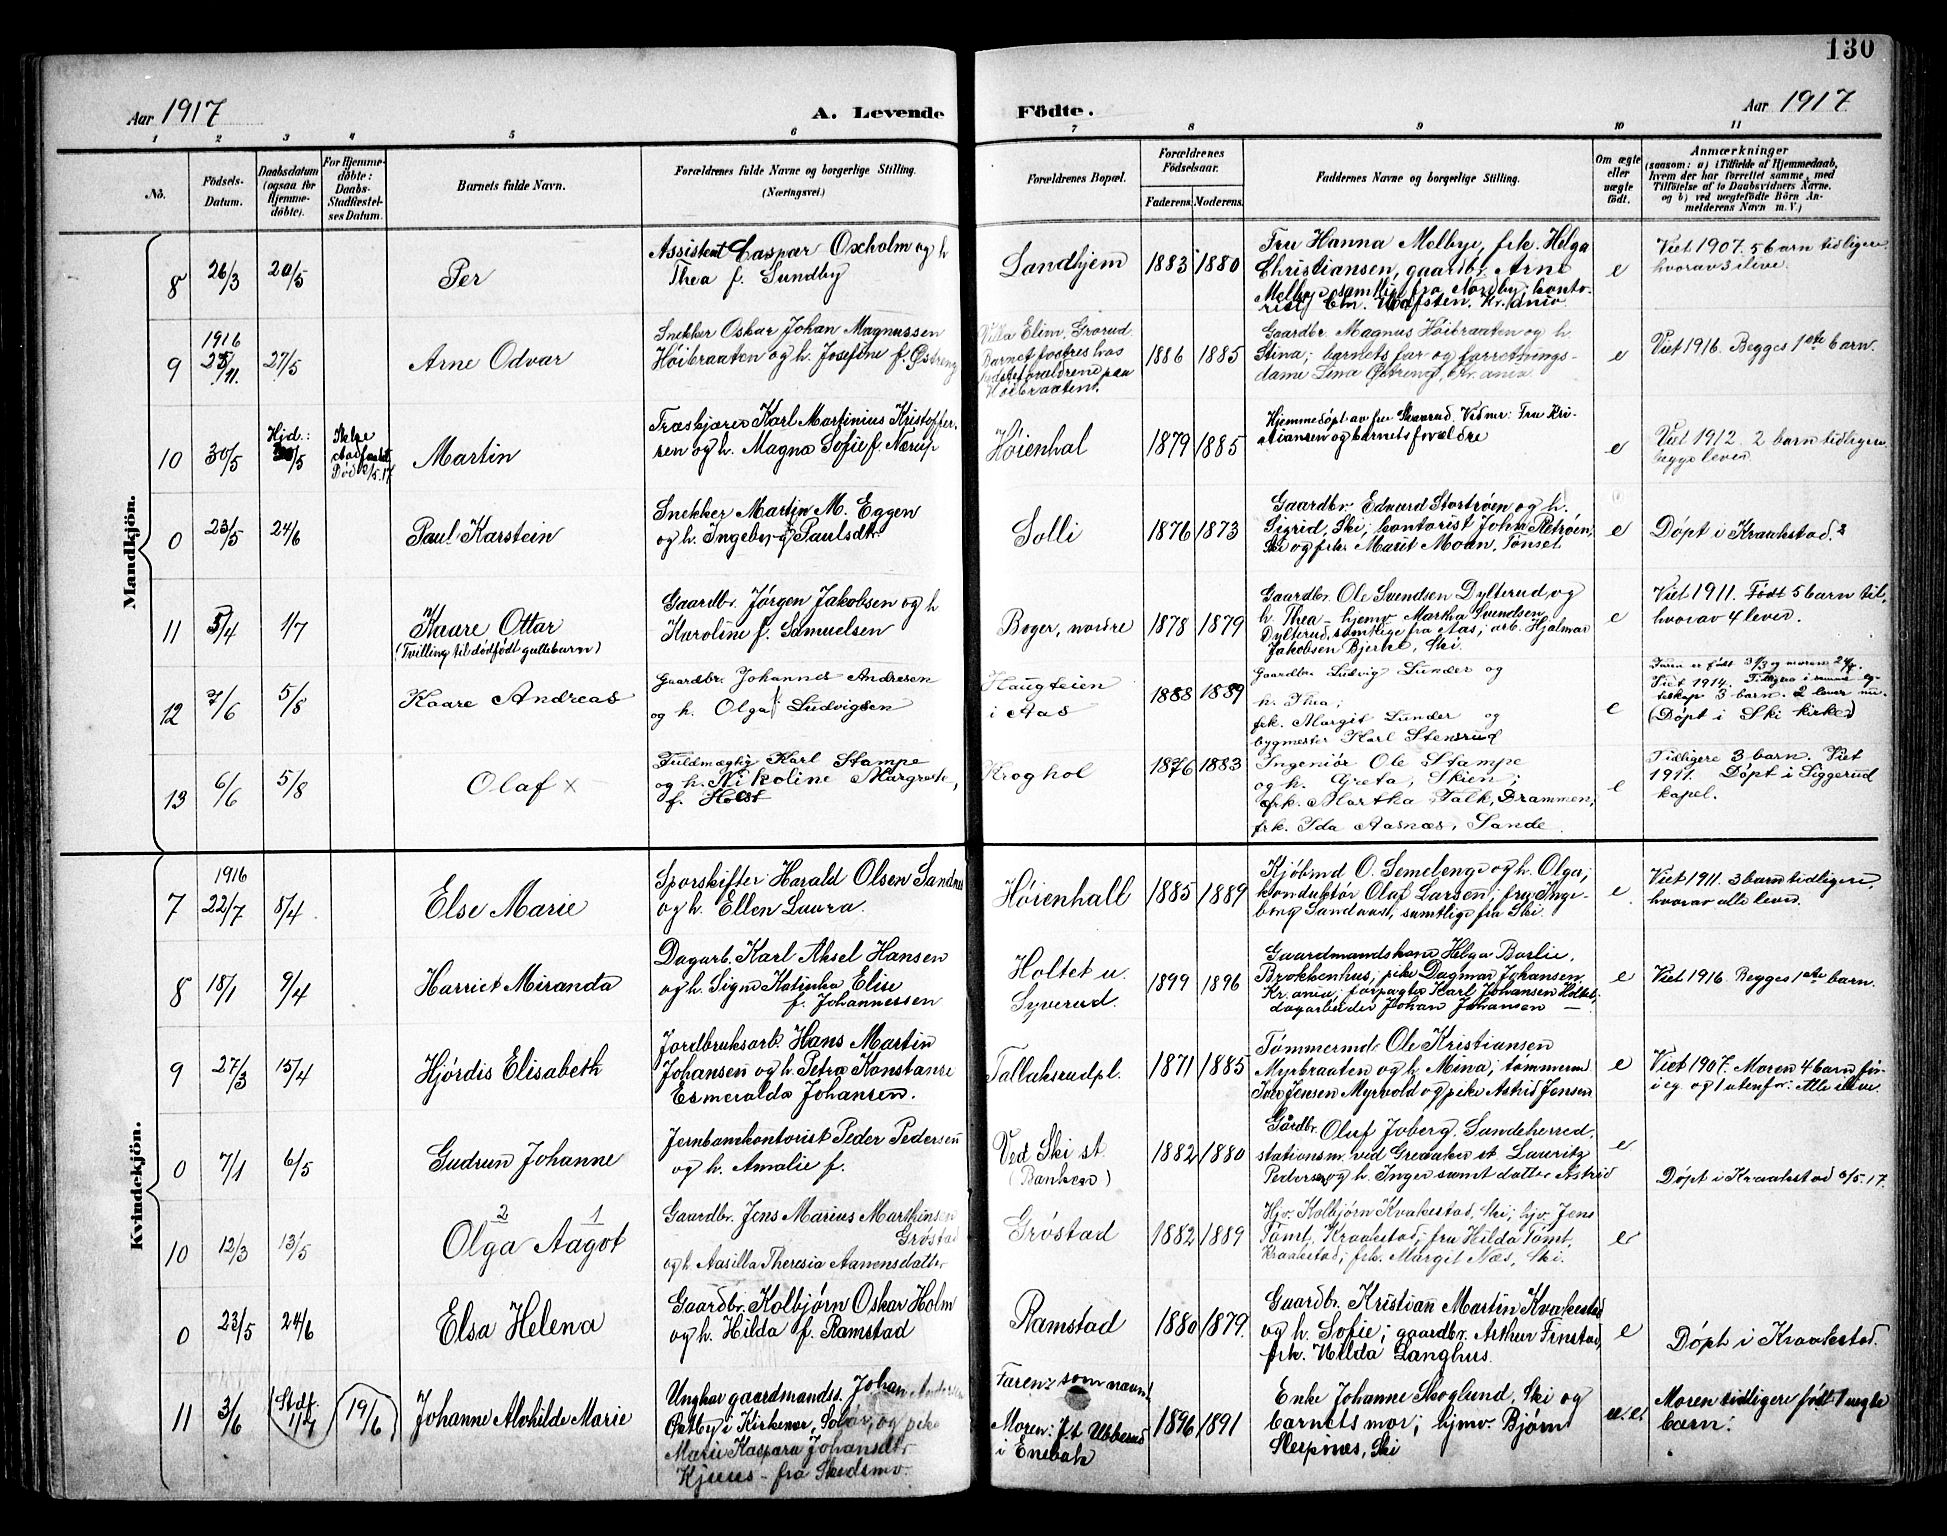 130
Aar 1917
A. Levende Födte.
Aar 1917
1 2 3 4 5 6 7 8 9 10 11
No.
Födsels-Datum.
Daabsdatum (ogsaa for Hjemmedöbte).
For Hjemmedöbte: Daabs-Stadfæstelses Datum.
Barnets fulde Navn.
Forældrenes fulde Navne og borgerlige Stilling.
(Næringsvei)
Forældrenes Bopæl.
Forældrenes Födselsaar.
Faderens. Moderens.
Faddernes Navne og borgerlige Stilling.
Om ægte eller uægte födt.
Anmærkninger
(saasom: a) i Tilfælde af Hjemmedaab, hvem der har forrettet samme, med Tilföielse af to Daabsvidners Navne. og b) ved uægtefödte Börn Anmelderens Navn m. V.)
Mandkjön.
8 26/3 20/5 Per
Assistent Caspar Oxholm og h
Thea f. Sundby
Sandhjem 1883 1880
Fru Hanna Melbye, frk. Helga
Christiansen, gaardbr. Arne
Melbye samtlige fra Nordby; konto-
rist Chr. Ustsen, Kr.ania
e
Viet 1907. 5 barn tidligere
hvorav 3 i live.
1916
9 25/11 27/5 Arne Odvar
Snekker Oskar Johan Magnussen
Høibraaten og h. Josefine f. Østreng
Villa Elim, Grorud
Barnet fostres hos
Bedsteforældrene paa
Høibraaten.
1886 1885
Gaardbr. Magnus Høibraaten og h.
Stina; barnets far og forretnings-
dame Lina Østreng, Kr.ania.
e
Viet 1916. Begges 1ste barn.
10 30/5 Hjd.: 30/5
Ikke stadfæstet Død 31/5.17
Martin
Træskjærer Karl Martinius Kristoffer-
sen og h. Magna Sofie f. Nærup
Høienhal 1879 1885
Hjemmedøpt av fru Skaarud. Vidner: Fru Kri-
stiansen og barnets forældre
e
Viet 1912. 2 barn tidligere
begge lever.
0 23/5 24/6 Paul Karstein
Snekker Martin M. Eggen
og h. Ingeborg Paulsdtr.
Solli 1876 1873
Gaardbr. Edvard Stortrøen og h.
Sigrid, Ski; kontorist John Røtrøen,
Ski og frk. Marit Moan, Tønset
e
Døpt i Kraakestad.
11 5/4 1/7 Kaare Ottar
(Tvilling til dødfødt guttebarn)
Gaardbr. Jørgen Jakobsen og h
Karoline f. Samuelsen
Boger, nordre 1878 1879
Gaardbr. Ole Svendsen Dylterud og
h. Thea – hjemv. Martha Svendsen
Dylterud, samtlige fra Aas; arb. Hjalmar
Jakobsen Bjerke, Ski.
e
Viet 1911. Født 5 barn til,
hvorav 4 lever.
12 7/6 5/8 Kaare Andreas
Gaardbr. Johannes Andresen
og h. Olga Ludvigsen
Haugteien
i Aas
1888 1889
Gaardbr. Ludvig Sunder og
h. Thea;
frk. Margit Sunder og
bygmester Karl Stensrud
e
Faren er født 31/3 og moren 24/8.
Viet 1914. Tidligere i samme eg-
teskap 3 barn. 2 lever nu.
(Døpt i Ski kirke)
13 6/6 5/8 Olaf x
Fuldmægtig Karl Stampe
og h. Nikoline Margrete,
f. Holst
Kroghol 1876 1883
Ingeniør Ole Stampe
og h. Greta, Skien;
frk. Martha Falk, Drammen,
frk. Ida Aasnæs, Sande.
e
Tidligere 3 barn. Viet
1911. Døpt i Siggerud
kapel.
Kvindekjön.
1916
7 22/7 8/4 Else Marie
Sporskifter Harald Olsen Sandaas
og h. Ellen Laura.
Høienhall 1885 1889
Kjøbmd O. Semelenge og h. Olga;
konduktør Olaf Larsen; fru Inge-
borg Sandaas, samtlige fra Ski.
e.
Viet 1911. 3 barn tidligere,
hvorav alle lever.
8 18/1 9/4 Harriet Miranda
Dagarb. Karl Aksel Hansen
og h. Signe Katinka Elise
f. Johannessen
Holtet u.
Syverud.
1899 1896
Gaardmandskone Helga Barlie,
Brokkenhus; pike Dagmar Johansen
Kr.ania; forpagter Karl Johansen Holtet;
dagarbeider Johan Johansen —
e
Viet 1916. Begges 1ste barn.
9 27/3 15/4 Hjördis Elisabeth
Jordbruksarb. Hans Martin
Johansen og h. Petra Konstanse
Esmeralda Johansen.
Tallaksrudpl. 1871 1885
Tømmermd. Ole Kristiansen
Myrbraaten og h. Mina; tømmerm
Ivar Jensen Myrvold og pike Astrid Jensen
e
Viet 1907. Moren 4 barn før
i eg. og 1 utenfor. Alle i live.
0 7/1 6/5 Gudrun Johanne
Jernbanekontorist Peder Pedersen
og h. Amalie f.
Ved Ski st.
(Banken)
1882 1880
Gårdbr. Oluf Joberg, Sandeherred,
stationsm. ved Greaaker st. Lauritz
Pedersen og h. Inger samt datter Astrid
e
Døpt i Kraakestad 6/5.17.
2 1
10 12/3 13/5 Olga Aagot
Gaardbr. Jens Marius Marthinsen
Grøstad
og h. Aasilla Theresia Aanensdatter
Grøstad 1882 1889
Hjv. Kolbjørn Kvakestad, Ski; hjv. Jens
Tømt, Kraakestad; fru Hilda Tømt,
Kraakestad; frk. Margit Næs, Ski.
e
0 23/5 24/6 Elsa Helena
Gaardbr. Kolbjørn Oskar Holm
og h. Hilda f. Ramstad
Ramstad 1880 1879.
Gaardbr. Kristian Martin Kvakestad
og h. Sofie; gaardbr. Arthur Finstad,
frk. Hilda Langhus.
e
Døpt i Kraakestad.
11 3/6 Stdf. 1/7 19/6 Johanne Alvhilde Marie
Ungkar gaardmandss. Johan Andersen
Østby i Kirkenær, Solør, og pike
Marie Kaspara Johansdtr.
Kjuus – fra Skedsmo.
Faren: som navnt
Moren: p.t. Ubberud
i Enebak
1896 1891
Enke Johanne Skoglund, Ski og
barnets mor; hjmv. Bjørn
Sleipnes, Ski
u.e.
Moren tidligere født 1 uegte
barn.